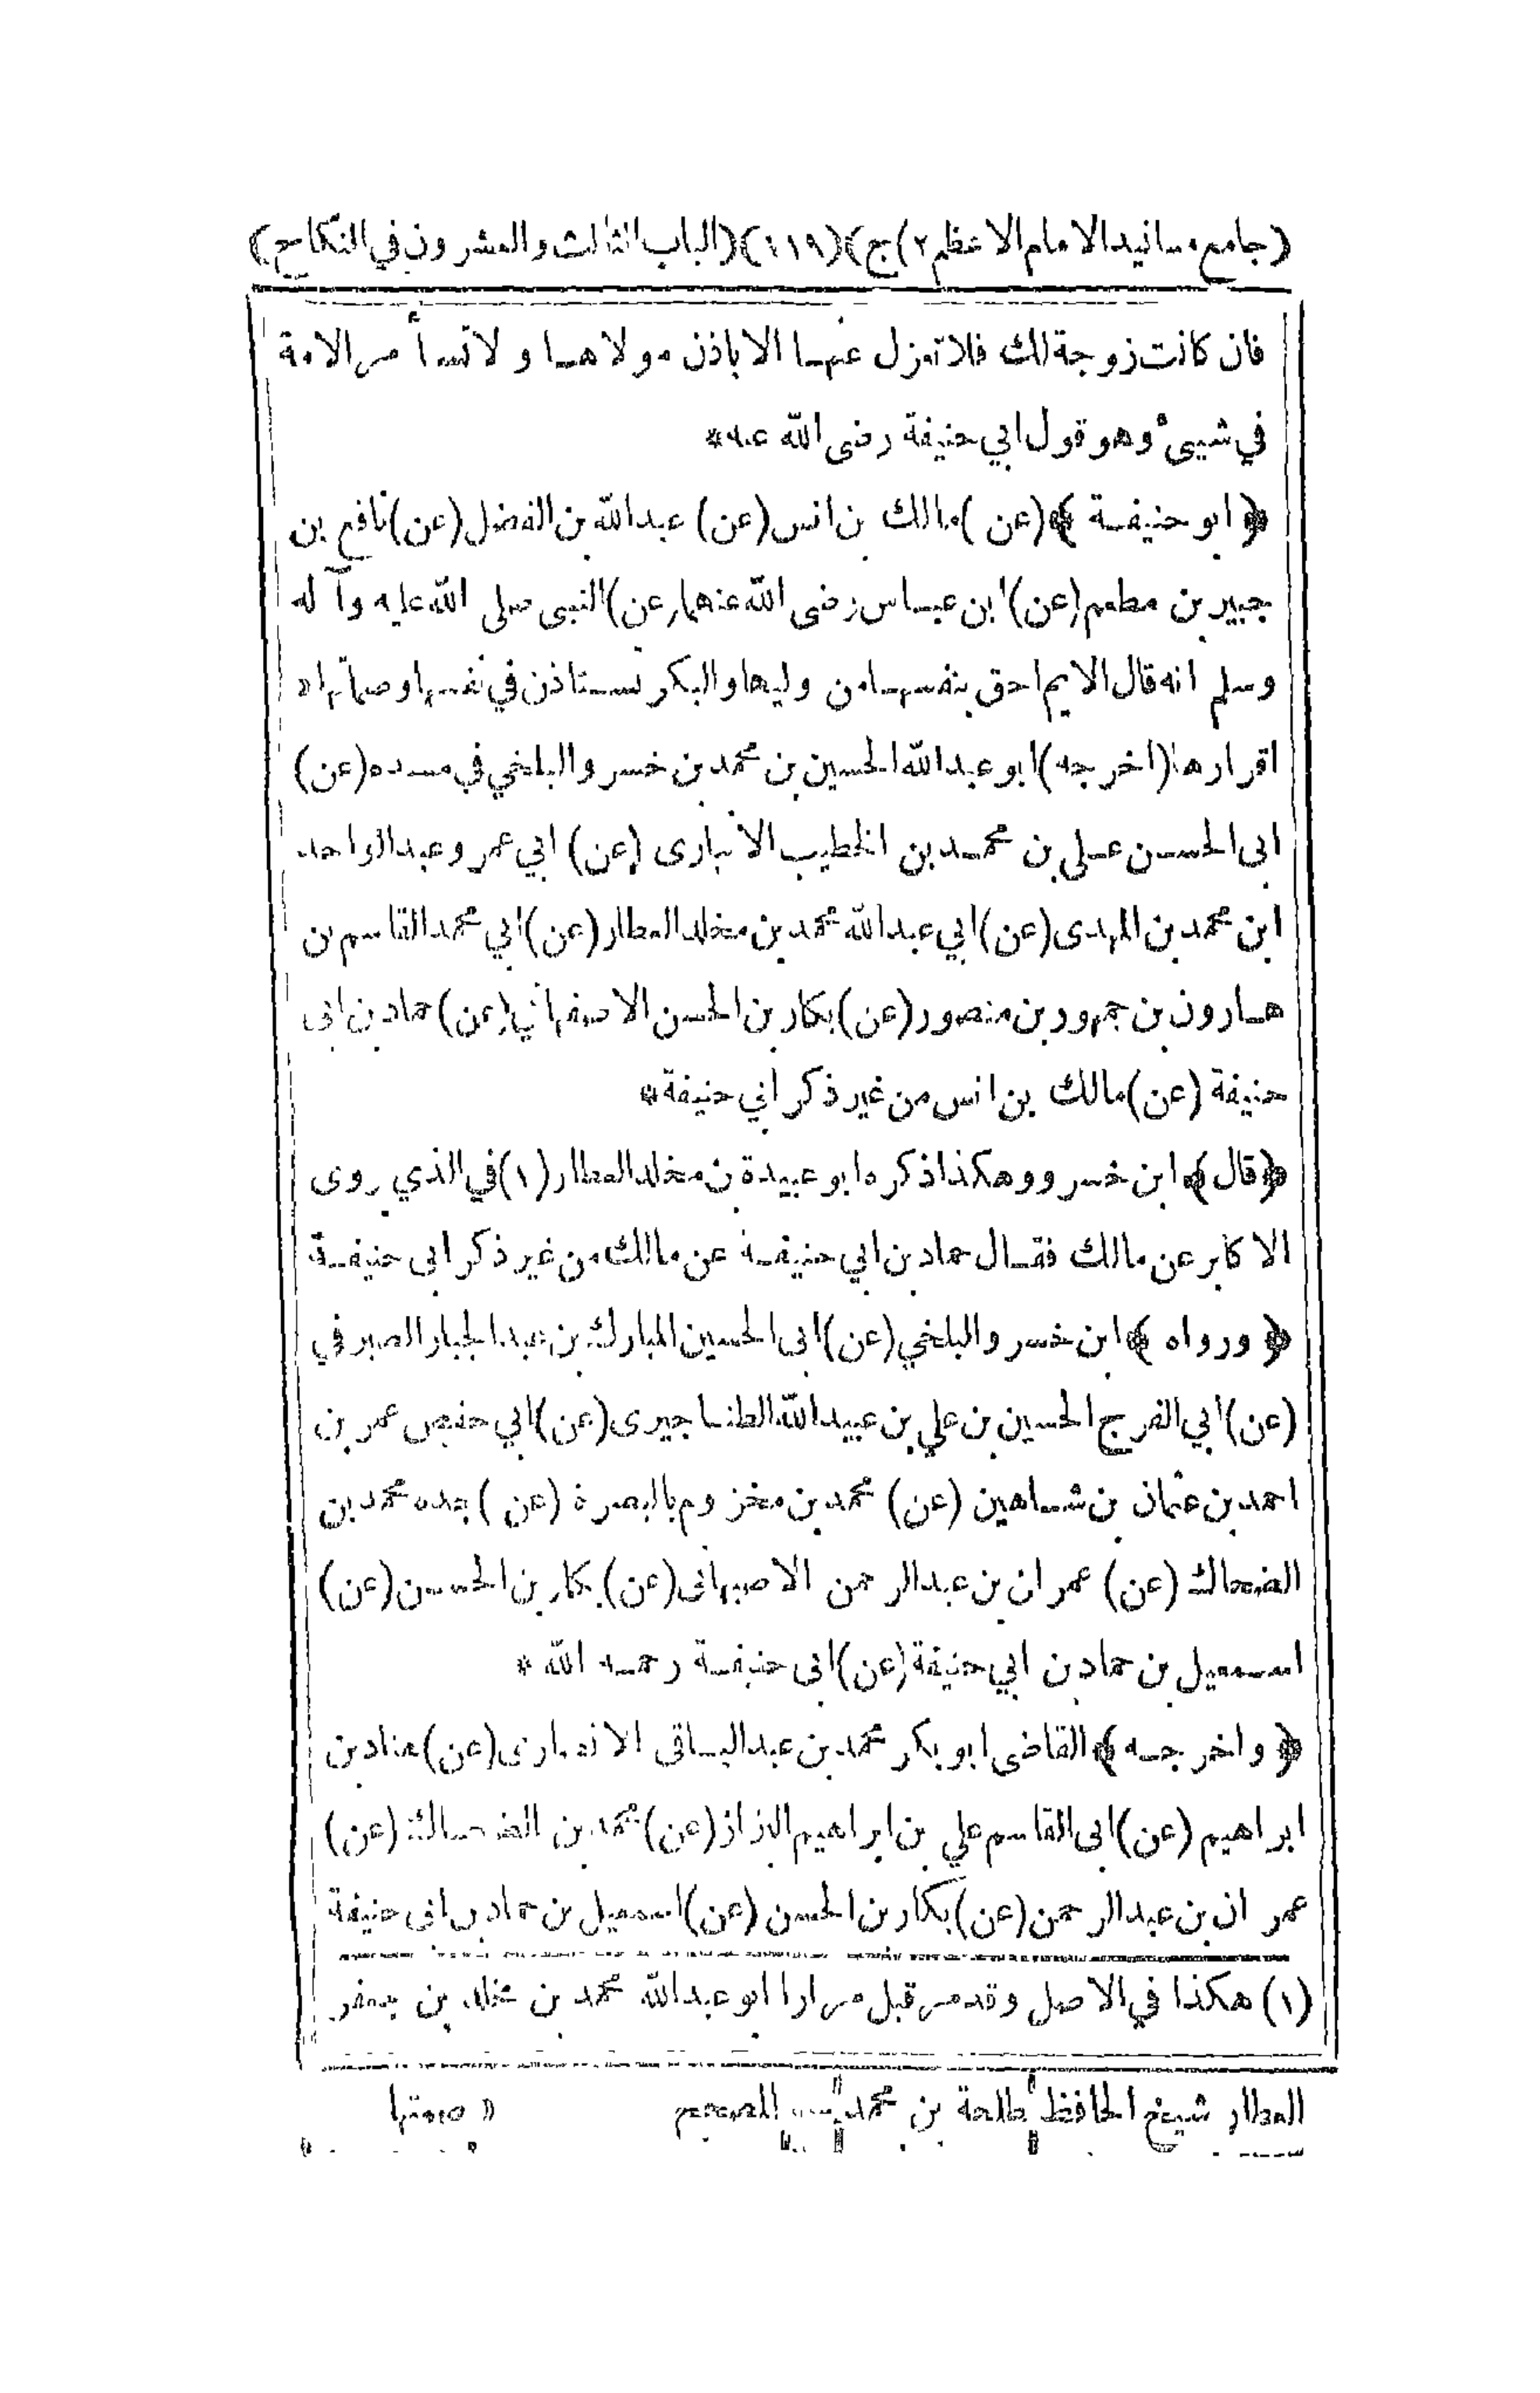 (جامع مسانيد الامام الاعظم ٢)ج)(١١٩)(الباب الثالث والعشرون في النكاح)
فان كانت زوجة لك فلا تعزل عنها الا باذن مولاها ولا تستأمر الامة
في شيئ وهو قول ابي حنيفة رضى الله عنه*
﴿ابو حنيفة﴾(عن)مالك بن انس(عن) عبدالله بن الفضل(عن)نافع بن
جبير بن مطعم(عن)ابن عباس رضى الله عنهما(عن)النبى صلى الله عليه وآله
وسلم انه قال الايم احق بنفسها من وليها والبكر تستاذن في نفسها وصماتها«
اقرارها(اخرجه)ابو عبدالله الحسين بن محمد بن خسرو البلخي في مسنده(عن)
ابى الحسن على بن محمد بن الخطيب الانبارى (عن) ابي عمر وعبدالواحد
ابن محمد بن المهدى(عن)ابي عبدالله محمد بن مخلد العطار(عن)ابي محمد القاسم بن
هارون بن جمهور بن منصور(عن)بكار بن الحسن الاصفهاني(عن)حماد بن ابى
حنيفة (عن)مالك بن انس من غير ذكر ابي حنيفة*
﴿قال﴾ ابن خسرو وهكذا ذكره ابو عبيدة بن مخلد العطار(١)في الذي روى
الاكابر عن مالك فقال حماد بن ابي حنيفة عن مالك من غير ذكر ابى حنيفة
﴿ورواه﴾ ابن خسرو البلخي(عن)ابى الحسين المبارك بن عبدالجبار الصيرفي
(عن)ابي الفرج الحسين بن علي بن عبيدالله الطناجيرى(عن)ابي حفص عمر بن
احمد بن عثمان بن شاهين (عن) محمد بن مخزوم بالبصرة (عن)جده محمد بن
الضحاك (عن) عمران بن عبدالرحمن الاصبهانى(عن)بكار بن الحسن(عن)
اسمعيل بن حماد بن ابي حنيفة(عن)ابى حنيفة رحمه الله *
﴿واخرجه﴾القاضى ابو بكر محمد بن عبدالباقى الانصارى(عن)هناد بن
ابراهيم (عن)ابى القاسم علي بن ابراهيم البزاز(عن)محمد بن الضحاك(عن)
عمران بن عبدالرحمن(عن)بكار بن الحسن (عن)اسمعيل بن حماد بن ابى حنيفة
(١) هكذا في الاصل وقد مر قبل مرارا ابو عبدالله محمد بن مخلد بن جعفر
العطار شيخ الحافظ طلحة بن محمد المصحح » صمتها